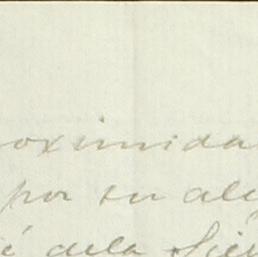 oximida
por su ale
é dela Sier